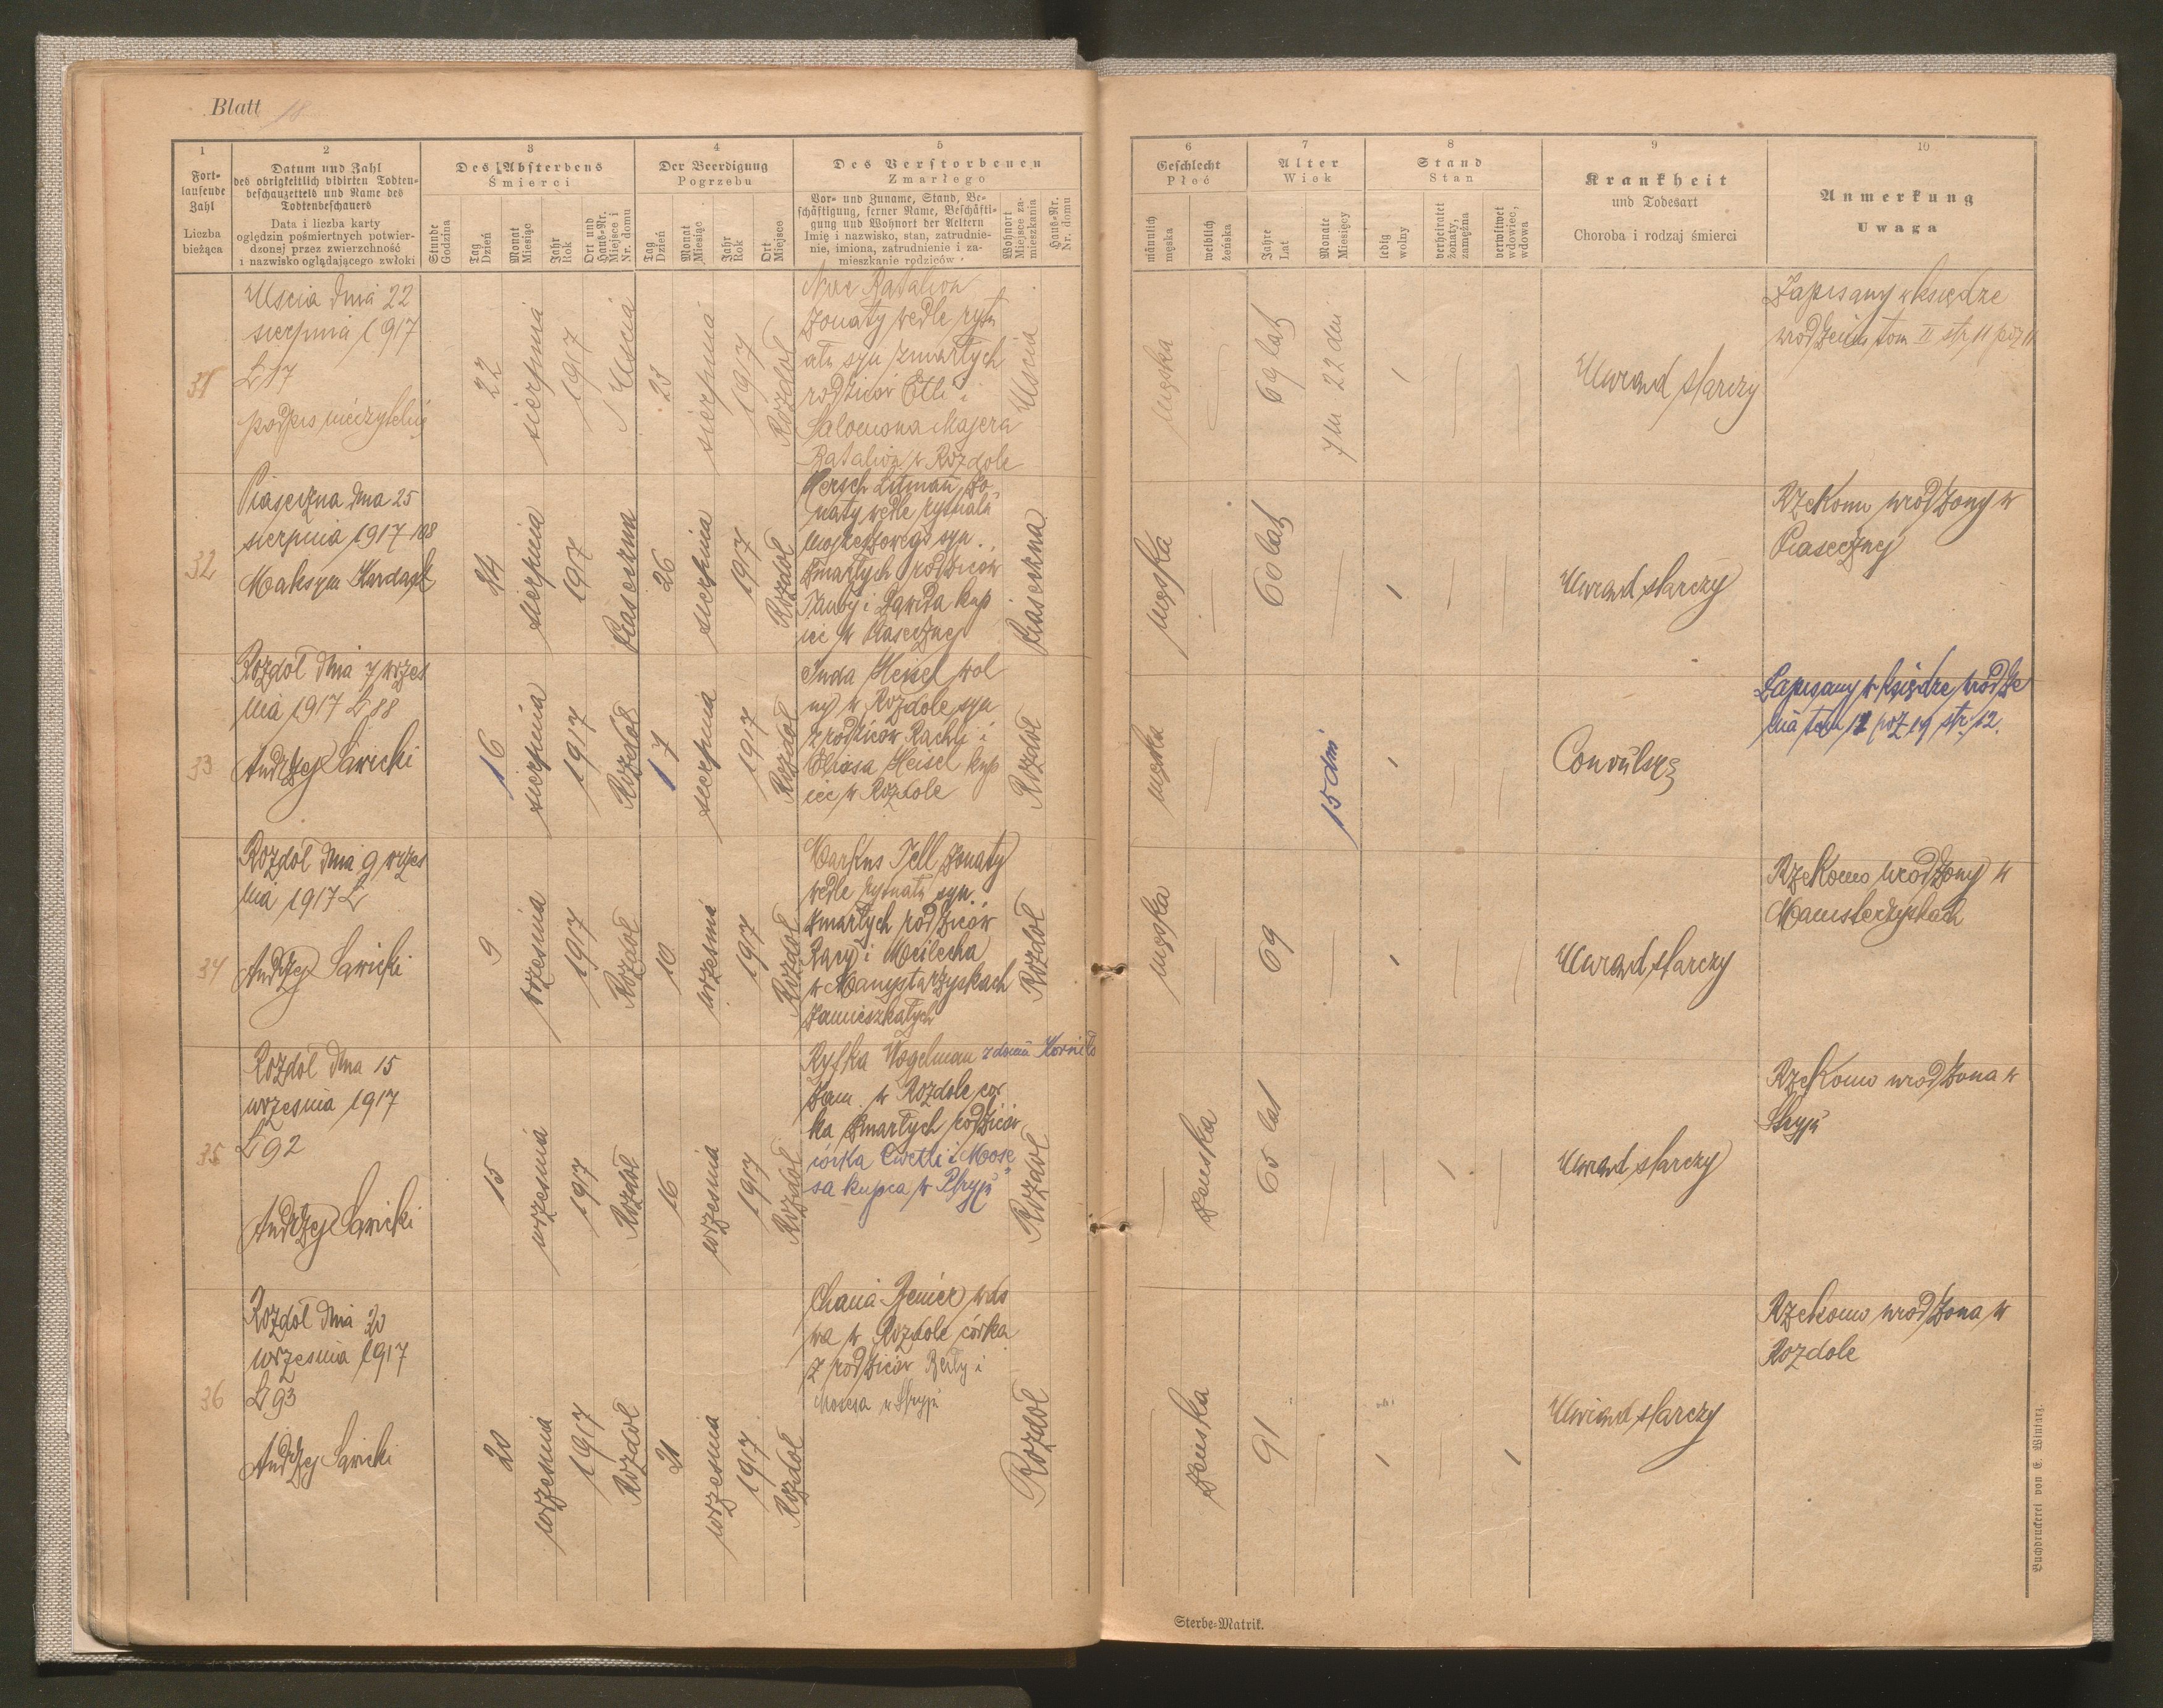 Blatt 18
1
2
3
4
5
Fort-
laufende
Zahl
Liczba
bieżąca
Datum und Zahl
des obrigkeitlich vidirten Todten-
beschauzettels und Name des
Todtenbeschauers
Data i liczba karty
oględzin pośmiertnych potwier-
dzonej przez zwierzchność
i nazwisko oglądającego zwłoki
Des Absterbens
Śmierci
Stunde
Godzina
Tag
Dzień
Monat
Miesiąc
Jahr
Rok
Ort und
Haus-Nr.
Miejsce i
Nr. domu
Der Beerdigung
Pogrzebu
Tag
Dzień
Monat
Miesiąc
Jahr
Rok
Ort
Miejsce
Des Verstorbenen
Zmarłego
Vor- und Zuname, Stand, Be-
schäftigung, ferner Name, Beschäfti-
gung und Wohnort der Aeltern
Imię i nazwisko, stan, zatrudnie-
nie, imiona, zatrudnienie i za-
mieszkanie rodziców
Wohnort
Miejsce za-
mieszkania
Haus-Nr.
Nr. domu
6
7
8
9
10
Geschlecht
Płeć
männlich
męska
weiblich
żeńska
Alter
Wiek
Jahre
Lat
Monate
Miesięcy
Stand
Stan
ledig
wolny
verheiratet
żonaty,
zamężna
verwitwet
wdowiec,
wdowa
Krankheit
und Todesart
Choroba i rodzaj śmierci
Anmerkung
Uwaga
31
Uscia dnia 22
sierpnia 1917
L 17
podpis nieczytelny
22
sierpnia
1917
Uscia
23
sierpnia
1917
Rozdół
Ratalion
żonaty wedle rytu
ału syn zmarłych
rodziców Etli i
Salomona Majera
Ratalion w Rozdole
Uscia
męska
69 lat
7 m 22 dni
Uwiąd starczy
Zapisany w księdze
urodzenia tom II str 11 poz 11
32
Piaseczna dnia 25
sierpnia 1917 188
Maksym
24
sierpnia
1917
Piaseczna
26
sierpnia
1917
Rozdół
Hersch Litman, żo
naty wedle rytuału
mojżeszowego syn
zmarłych rodziców
Tauby i Dawida kup
iec w Piasecznej
Piaseczna
męska
60 lat
Uwiąd starczy
Rzekomo urodzony w
Piasecznej
33
Rozdół dnia 7 wrześ
nia 1917 L 88
Andrzej Sawicki
16
sierpnia
1917
Rozdół
17
sierpnia
1917
Rozdół
Juda Heisel wol
ny w Rozdole syn
z rodziców Rachli i
Eliasa Heisel kup
iec w Rozdole
Rozdół
męska
15 dni
Convulsye
Zapisany w księdze urodze
nia tom II poz 19 str. 12.
34
Rozdół dnia 9 wrześ
nia 1917 L
Andrzej Sawicki
9
września
1917
Rozdół
10
września
1917
Rozdół
Markus Tell żonaty
wedle rytuału syn
zmarłych rodziców
Racy i Meilecha
w Manysterzyskach
zamieszkałych
Rozdół
męska
69
Uwiąd starczy
Rzekomo urodzony w
Manisterzyskach
35
Rozdół dnia 15
września 1917
L 92
Andrzej Sawicki
15
września
1917
Rozdół
16
września
1917
Rozdół
Ryfka Vogelman z domu Kornilo
zam. w Rozdole cór
ka zmarłych rodziców
córka Cwetli i Mose
sa kupca w Stryju
Rozdół
żeńska
65 lat
Uwiąd starczy
Rzekomo urodzona w
Stryju
36
Rozdół dnia 20
września 1917
L 93
Andrzej Sawicki
20
września
1917
Rozdół
21
września
1917
Rozdół
Chana wdo
wa w Rozdole córka
z rodziców Beily i
Mosesa w Stryju
Rozdół
żeńska
91
Uwiąd starczy
Rzekomo urodzona w
Rozdole
Sterbe-Matrik.
Buchdruckerei von E. Wintarz.